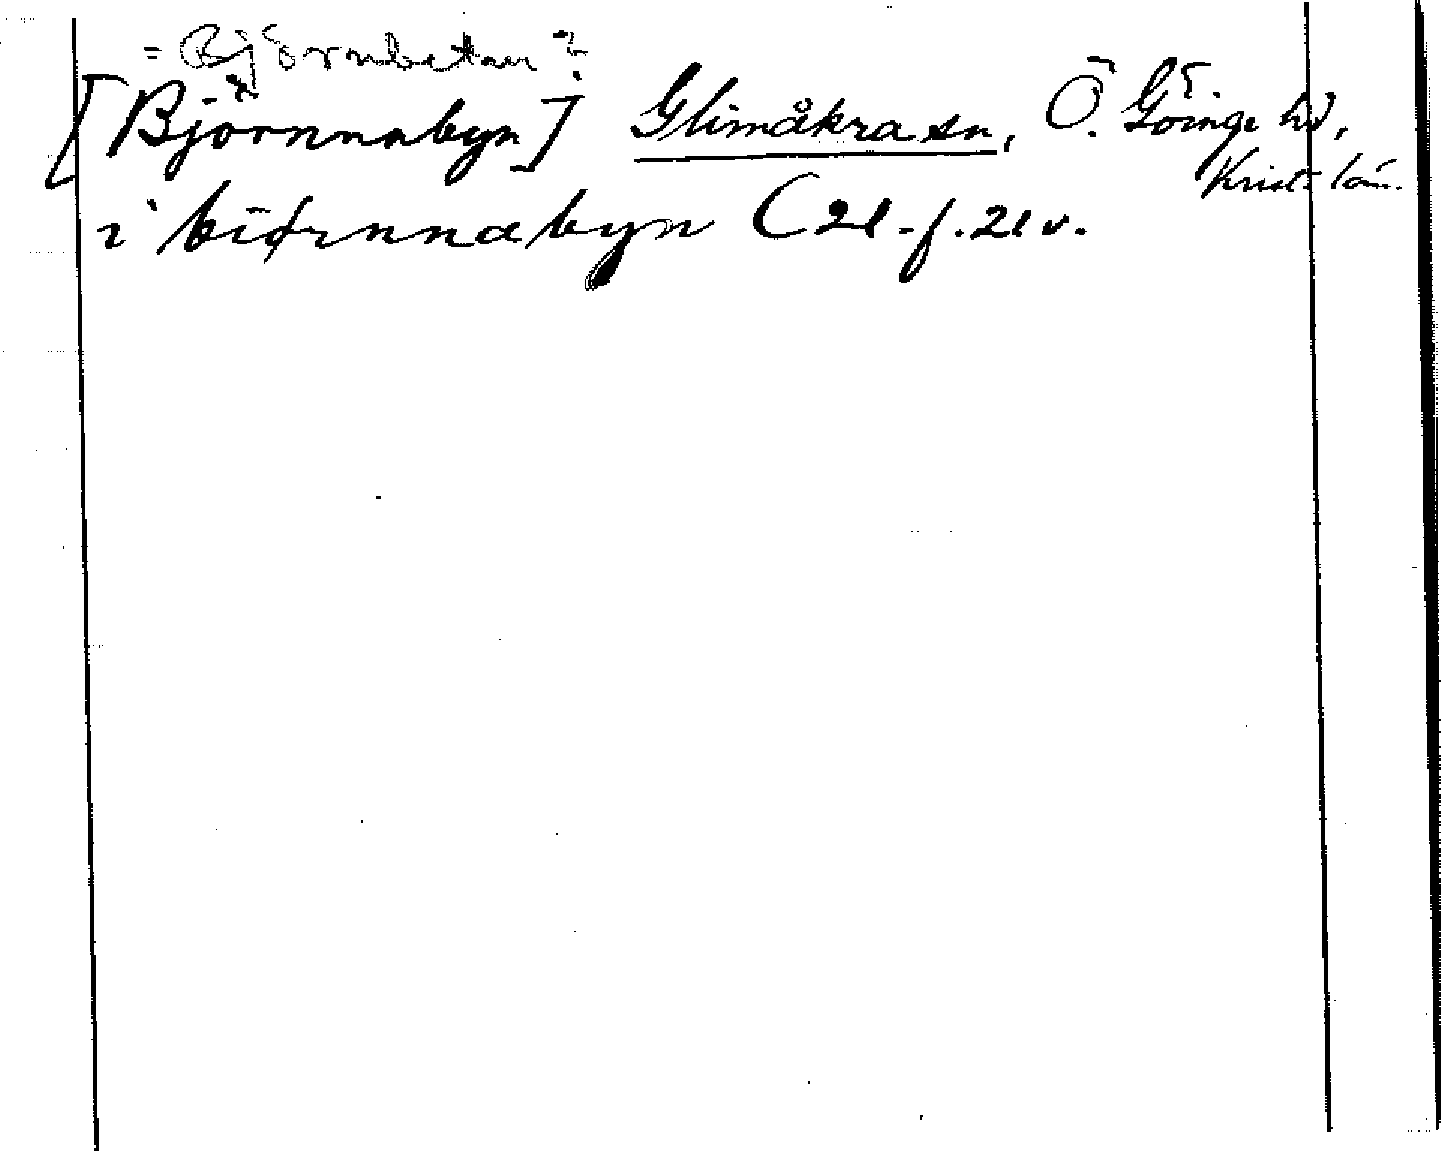 = Björnbetan ?
[Björnnabyn] Glimåkra sn, Ö. Göinge hd,
Krist. län.
i biørnnabyn (21. f. 21 v.